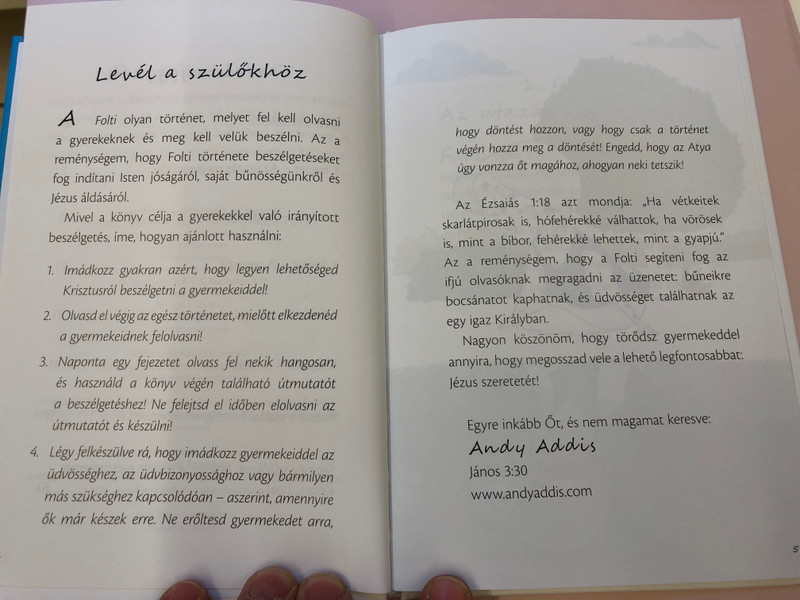 Levél a szülőkhöz
A Folti olyan történet, melyet fel kell olvasni
a gyerekeknek és meg kell velük beszélni. Az a
reménységem, hogy Folti története beszélgetéseket
fog indítani Isten jóságáról, saját bűnösségünkről és
Jézus áldásáról.
Mivel a könyv célja a gyerekekkel való irányított
beszélgetés, íme, hogyan ajánlott használni:
1. Imádkozz gyakran azért, hogy legyen lehetőséged
Krisztusról beszélgetni a gyermekeiddel!
2. Olvasd el végig az egész történetet, mielőtt elkezdenéd
a gyermekeidnek felolvasni!
3. Naponta egy fejezetet olvass fel nekik hangosan,
és használd a könyv végén található útmutatót
a beszélgetéshez! Ne felejtsd el időben elolvasni az
útmutatót és készülni!
4. Légy felkészülve rá, hogy imádkozz gyermekeiddel az
üdvösséghez, az üdvbizonyossághoz vagy bármilyen
más szükséghez kapcsolódóan – aszerint, amennyire
ők már készek erre. Ne erőltesd gyermekedet arra,
hogy döntést hozzon, vagy hogy csak a történet
végén hozza meg a döntését! Engedd, hogy az Atya
úgy vonzza őt magához, ahogyan neki tetszik!
Az Ézsaiás 1:18 azt mondja: „Ha vétkeitek
skarlátpirosak is, hófehérekké válhattok, ha vörösek
is, mint a bíbor, fehérekké lehettek, mint a gyapjú.”
Az a reménységem, hogy a Folti segíteni fog az
ifjú olvasóknak megragadni az üzenetet: bűneikre
bocsánatot kaphatnak, és üdvösséget találhatnak az
egy igaz Királyban.
Nagyon köszönöm, hogy törődsz gyermekeddel
annyira, hogy megosszad vele a lehető legfontosabbat:
Jézus szeretetét!
Egyre inkább Őt, és nem magamat keresve:
Andy Addis
János 3:30
www.andyaddis.com
5